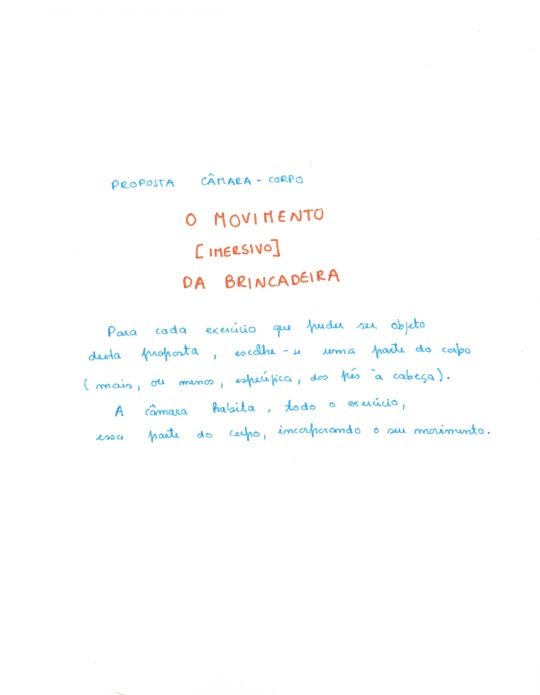 PROPOSTA CÂMARA - CORPO
O MOVIMENTO
[IMERSIVO]
DA BRINCADEIRA
Para cada exercício que puder ser objeto
desta proposta, escolhe-se uma parte do corpo
(mais, ou menos, específica, dos pés à cabeça).
A câmara habita, todo o exercício,
essa parte do corpo, incorporando o seu movimento.